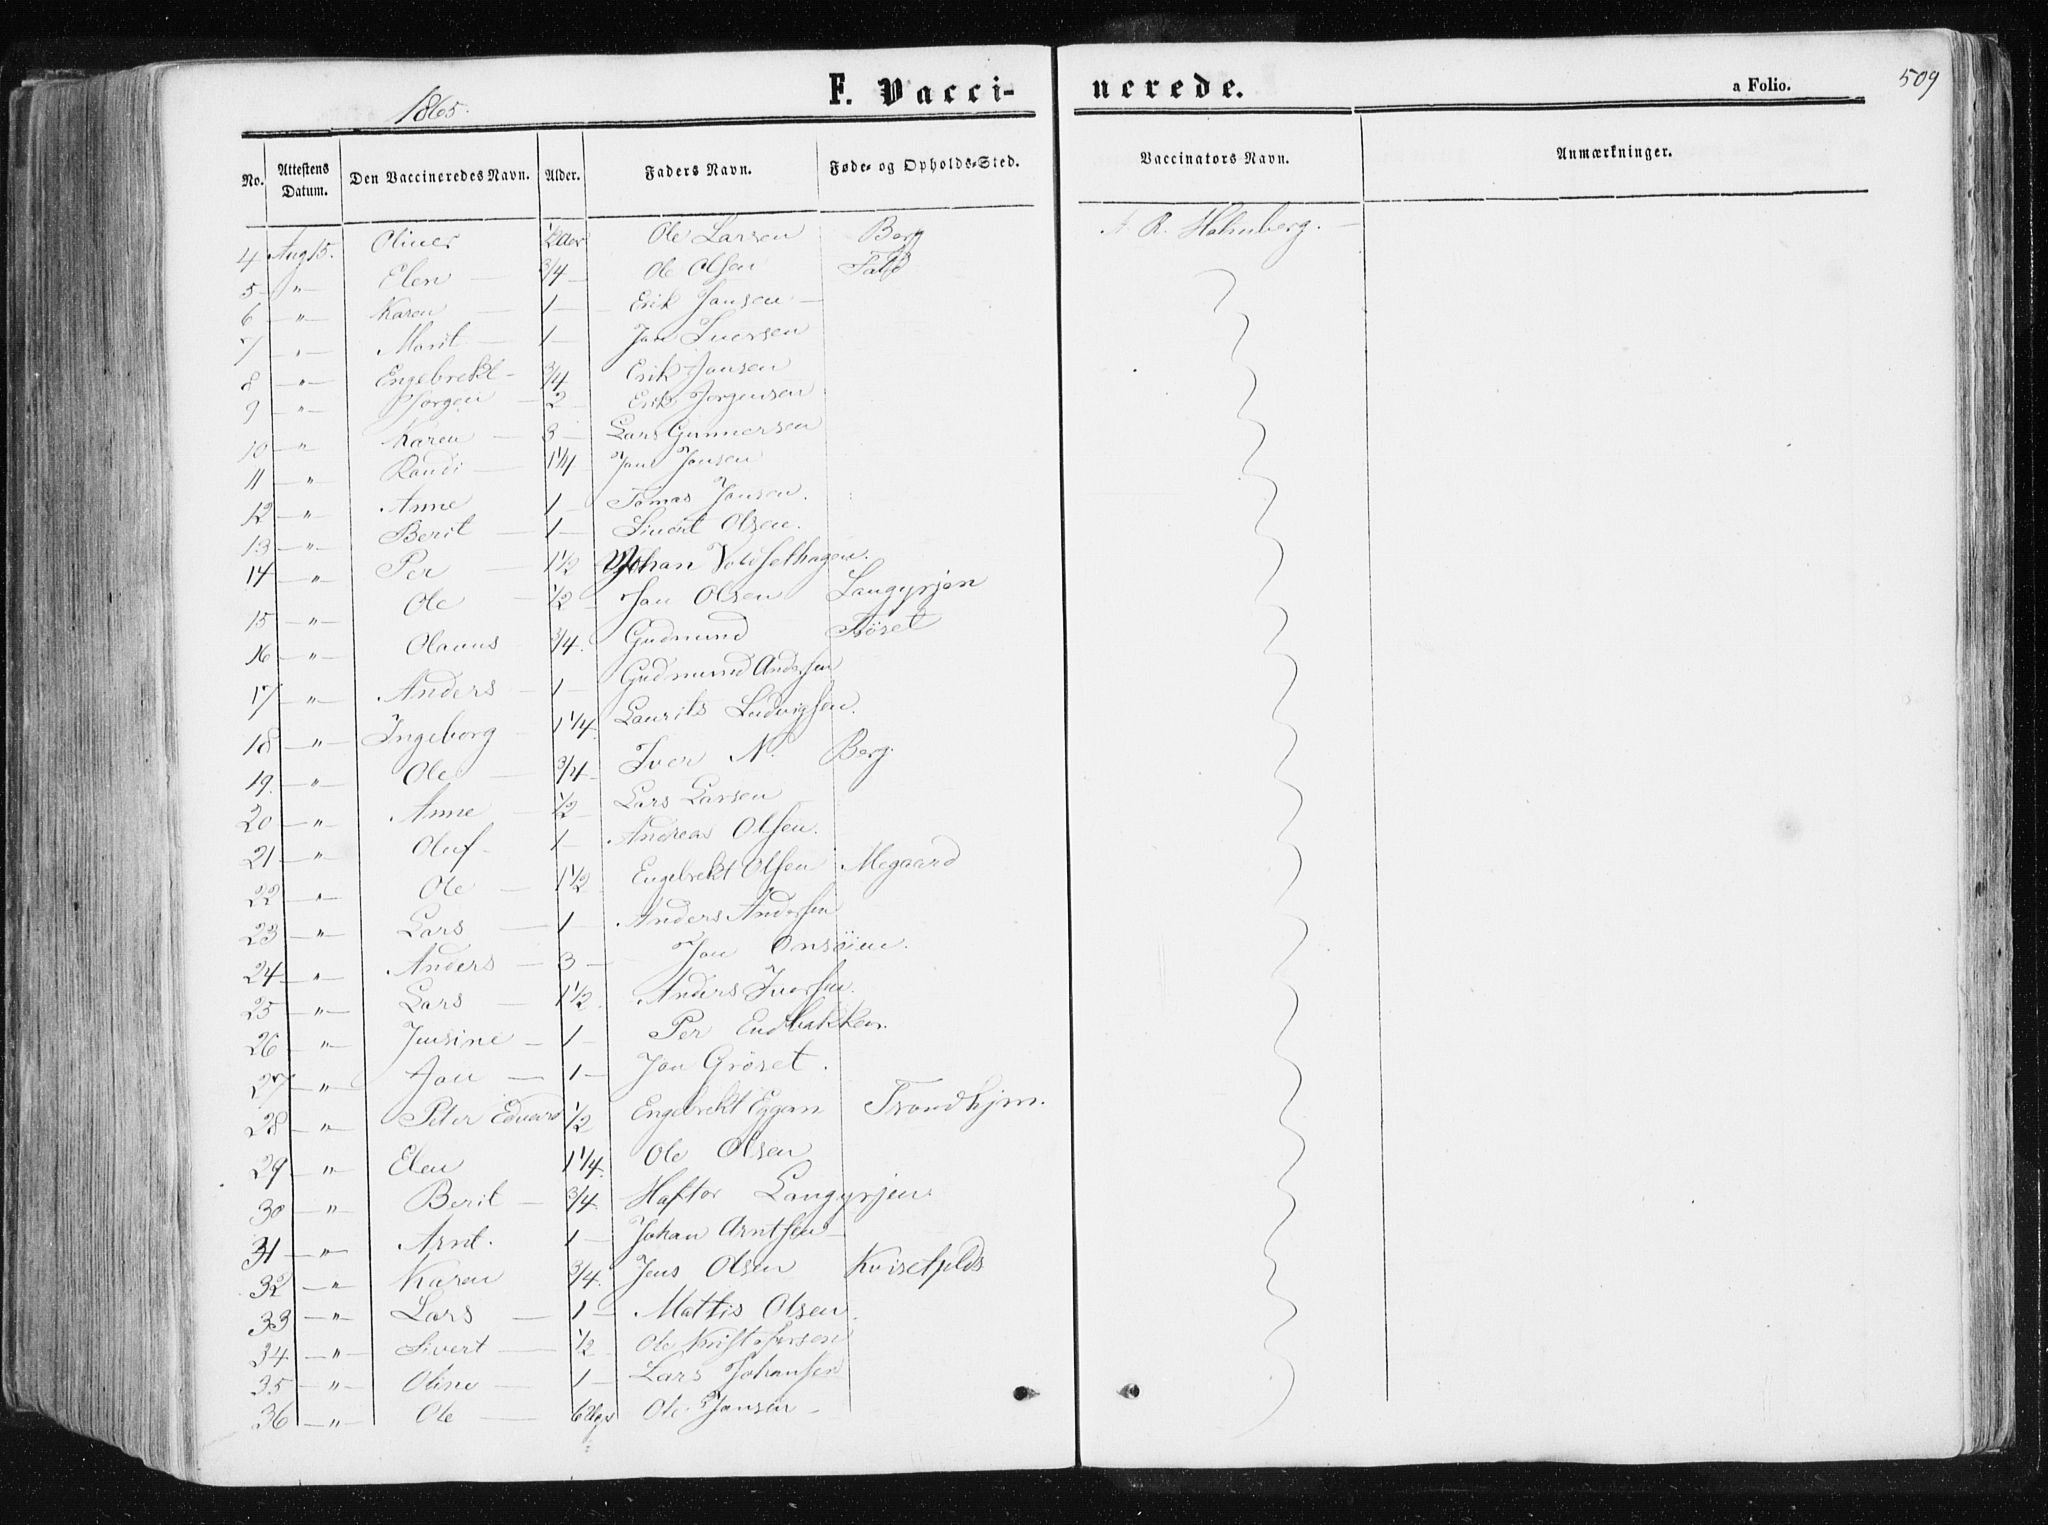 1865. F. Vacci- nerede. a Folio. 509
No. Attestens Datum. Den Vaccineredes Navn. Alder. Faders Navn. Føde- og Opholds-Sted. Vaccinators Navn. Anmærkninger.
4 Aug 15. Oliver 1/2 Ole Larsen Berg R. Holmberg. —
5 —"— Elen — 3/4 — Ole Olsen
6 —"— Karen — 1 — Erik Jansen —
7 —"— Marit — 1 — Jon Iversen
8 —"— Engebrekt — 3/4 Erik Jonsen
9 —"— Jorgen — 2 — Erik Jorgensen
10 —"— Karen — 3 — Lars Gunnersen
11 —"— Randi — 1 1/4 Jon Jonsen
12 —"— Anne 1 — Tomas Jonsen.
13 —"— Berit — 1 — Sivert Olsen.
14 —"— Per — 1 1/2 Johan
15 —"— Ole — 1/2 — Jon Olsen Langyrjen
16 —"— Olaus — 3/4. Gudmund
17 —"— Anders — 1 — Gudmund Andersen
18 —"— Ingeborg — 1 1/4. Laurits Ludvigsen.
19. —"— Ole — 3/4 — Iver N. Berg.
20 —"— Anne — 1/2 — Lars Larsen
21 —"— Oluf — 1 — Andreas Olsen.
22 —"— Ole — 1 1/2 Engebrekt Olsen Megaard
23 —"— Lars — 1 — Anders Andersen
24 —"— Anders — 3 — Jon
25 —"— Lars — 1 1/2. Anders Iversen.
26 —"— Jensine — 1 — Per
27 —"— Jon — 1 — Jon Grøset.
28 —"— Peter Edvard 1/2 Engebrekt Eggan Trondhjm.
29 —"— Elen 1 1/4. Ole Olsen
30 —"— Berit — 3/4. Haftor Langyrjen.
31 —"— Arnt. 1 — Johan Arntsen —
32 —"— Karen 3/4. Jens Olsen
33 —"— Lars — 1 — Mattis Olsen.
34 —"— Sivert — 1/2 Ole Kristofersen
35 —"— Oline — 1 — Lars Johansen
36 —"— Ole — 6 Ole Jonsen —